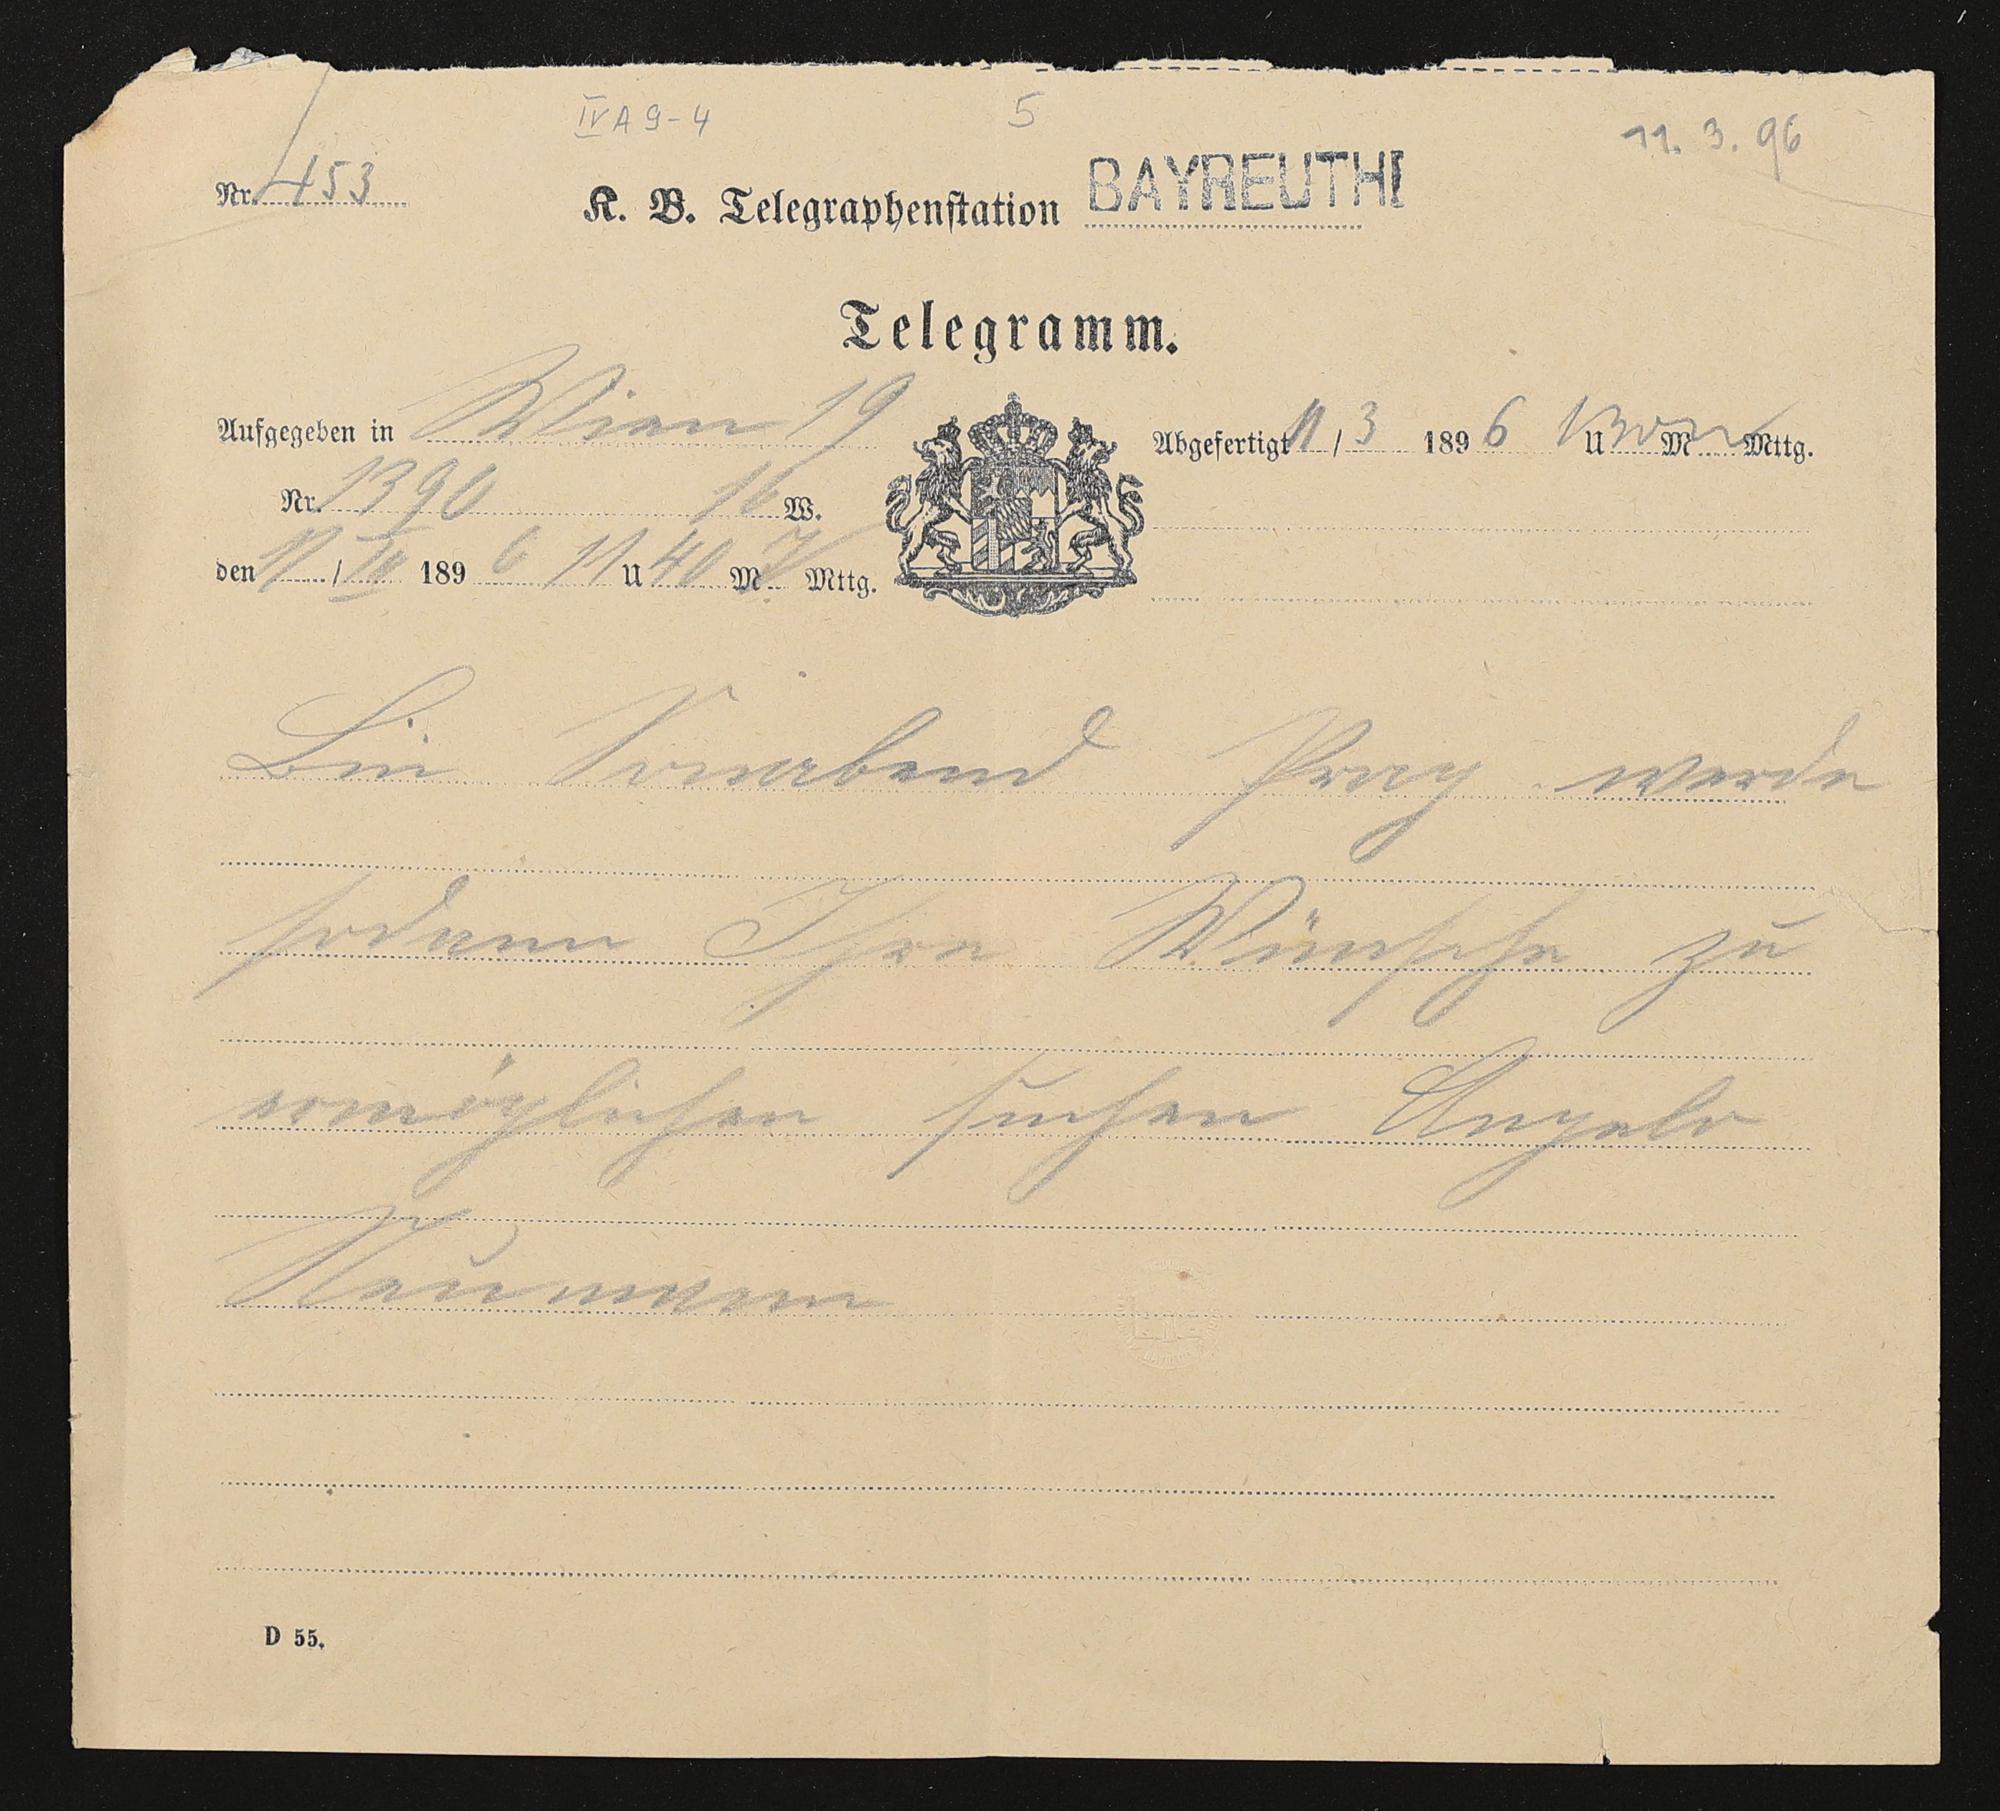 IV A 9-4
5
11. 3. 96
Nr. 453
K. B. Telegraphenstation BAYREUTH
Telegramm.
Aufgegeben in Wien 19
Nr. 1390 16 W.
den 11 / III 1896 11 U 40 M V Mttg.
Abgefertigt 11 / 3 1896 U M Mttg.
Bin Sonnabend Prag werde
sodann Ihre Wünsche zu
ermöglichen suchen Angelo
Neumann
D 55.